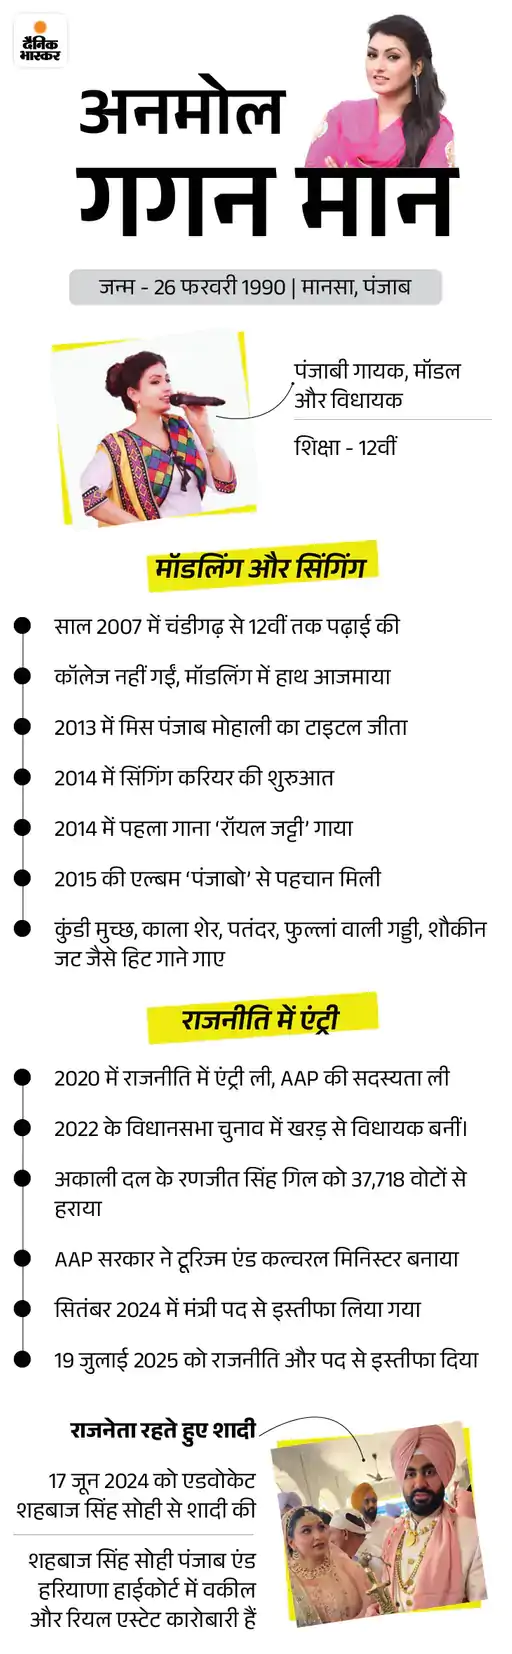 दैनिक
भास्कर
अनमोल
गगन मान
जन्म - 26 फरवरी 1990 | मानसा, पंजाब
पंजाबी गायक, मॉडल
और विधायक
शिक्षा - 12वीं
मॉडलिंग और सिंगिंग
साल 2007 में चंडीगढ़ से 12वीं तक पढ़ाई की
कॉलेज नहीं गईं, मॉडलिंग में हाथ आजमाया
2013 में मिस पंजाब मोहाली का टाइटल जीता
2014 में सिंगिंग करियर की शुरुआत
2014 में पहला गाना ‘रॉयल जट्टी’ गाया
2015 की एल्बम ‘पंजाबो’ से पहचान मिली
कुंडी मुच्छ, काला शेर, पतंदर, फुल्लां वाली गड्डी, शौकीन
जट जैसे हिट गाने गाए
राजनीति में एंट्री
2020 में राजनीति में एंट्री ली, AAP की सदस्यता ली
2022 के विधानसभा चुनाव में खरड़ से विधायक बनीं।
अकाली दल के रणजीत सिंह गिल को 37,718 वोटों से
हराया
AAP सरकार ने टूरिज्म एंड कल्चरल मिनिस्टर बनाया
सितंबर 2024 में मंत्री पद से इस्तीफा लिया गया
19 जुलाई 2025 को राजनीति और पद से इस्तीफा दिया
राजनेता रहते हुए शादी
17 जून 2024 को एडवोकेट
शहबाज सिंह सोही से शादी की
शहबाज सिंह सोही पंजाब एंड
हरियाणा हाईकोर्ट में वकील
और रियल एस्टेट कारोबारी हैं